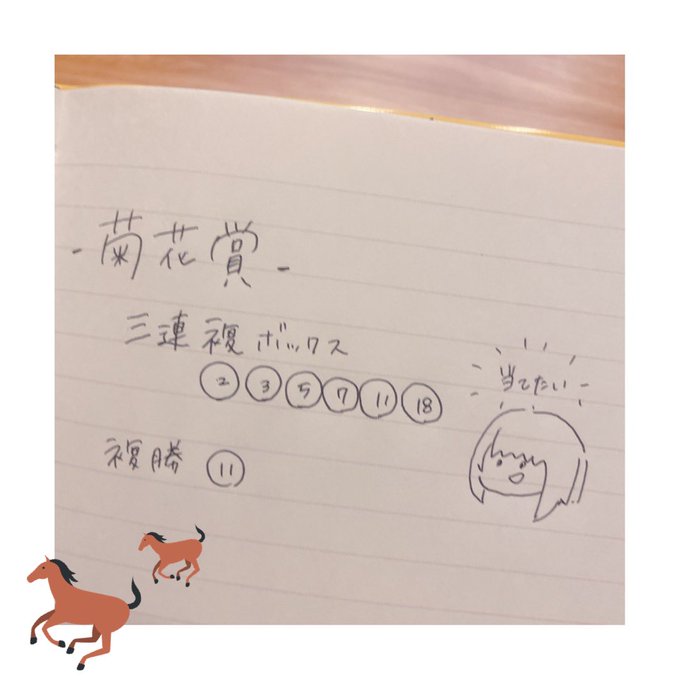 - 菊花賞 -
三連複ボックス
② ③ ⑤ ⑦ ⑪ ⑱
複勝 ⑪
当てたい